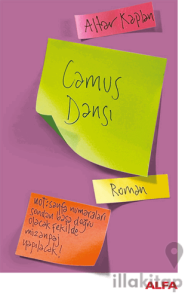 Altar Kaplan
Camus
Dansı
Roman
not: sayfa numaraları
sondan başa doğru
olacak şekilde
mizanpaj
yapılacak!
ALFA
illakitap